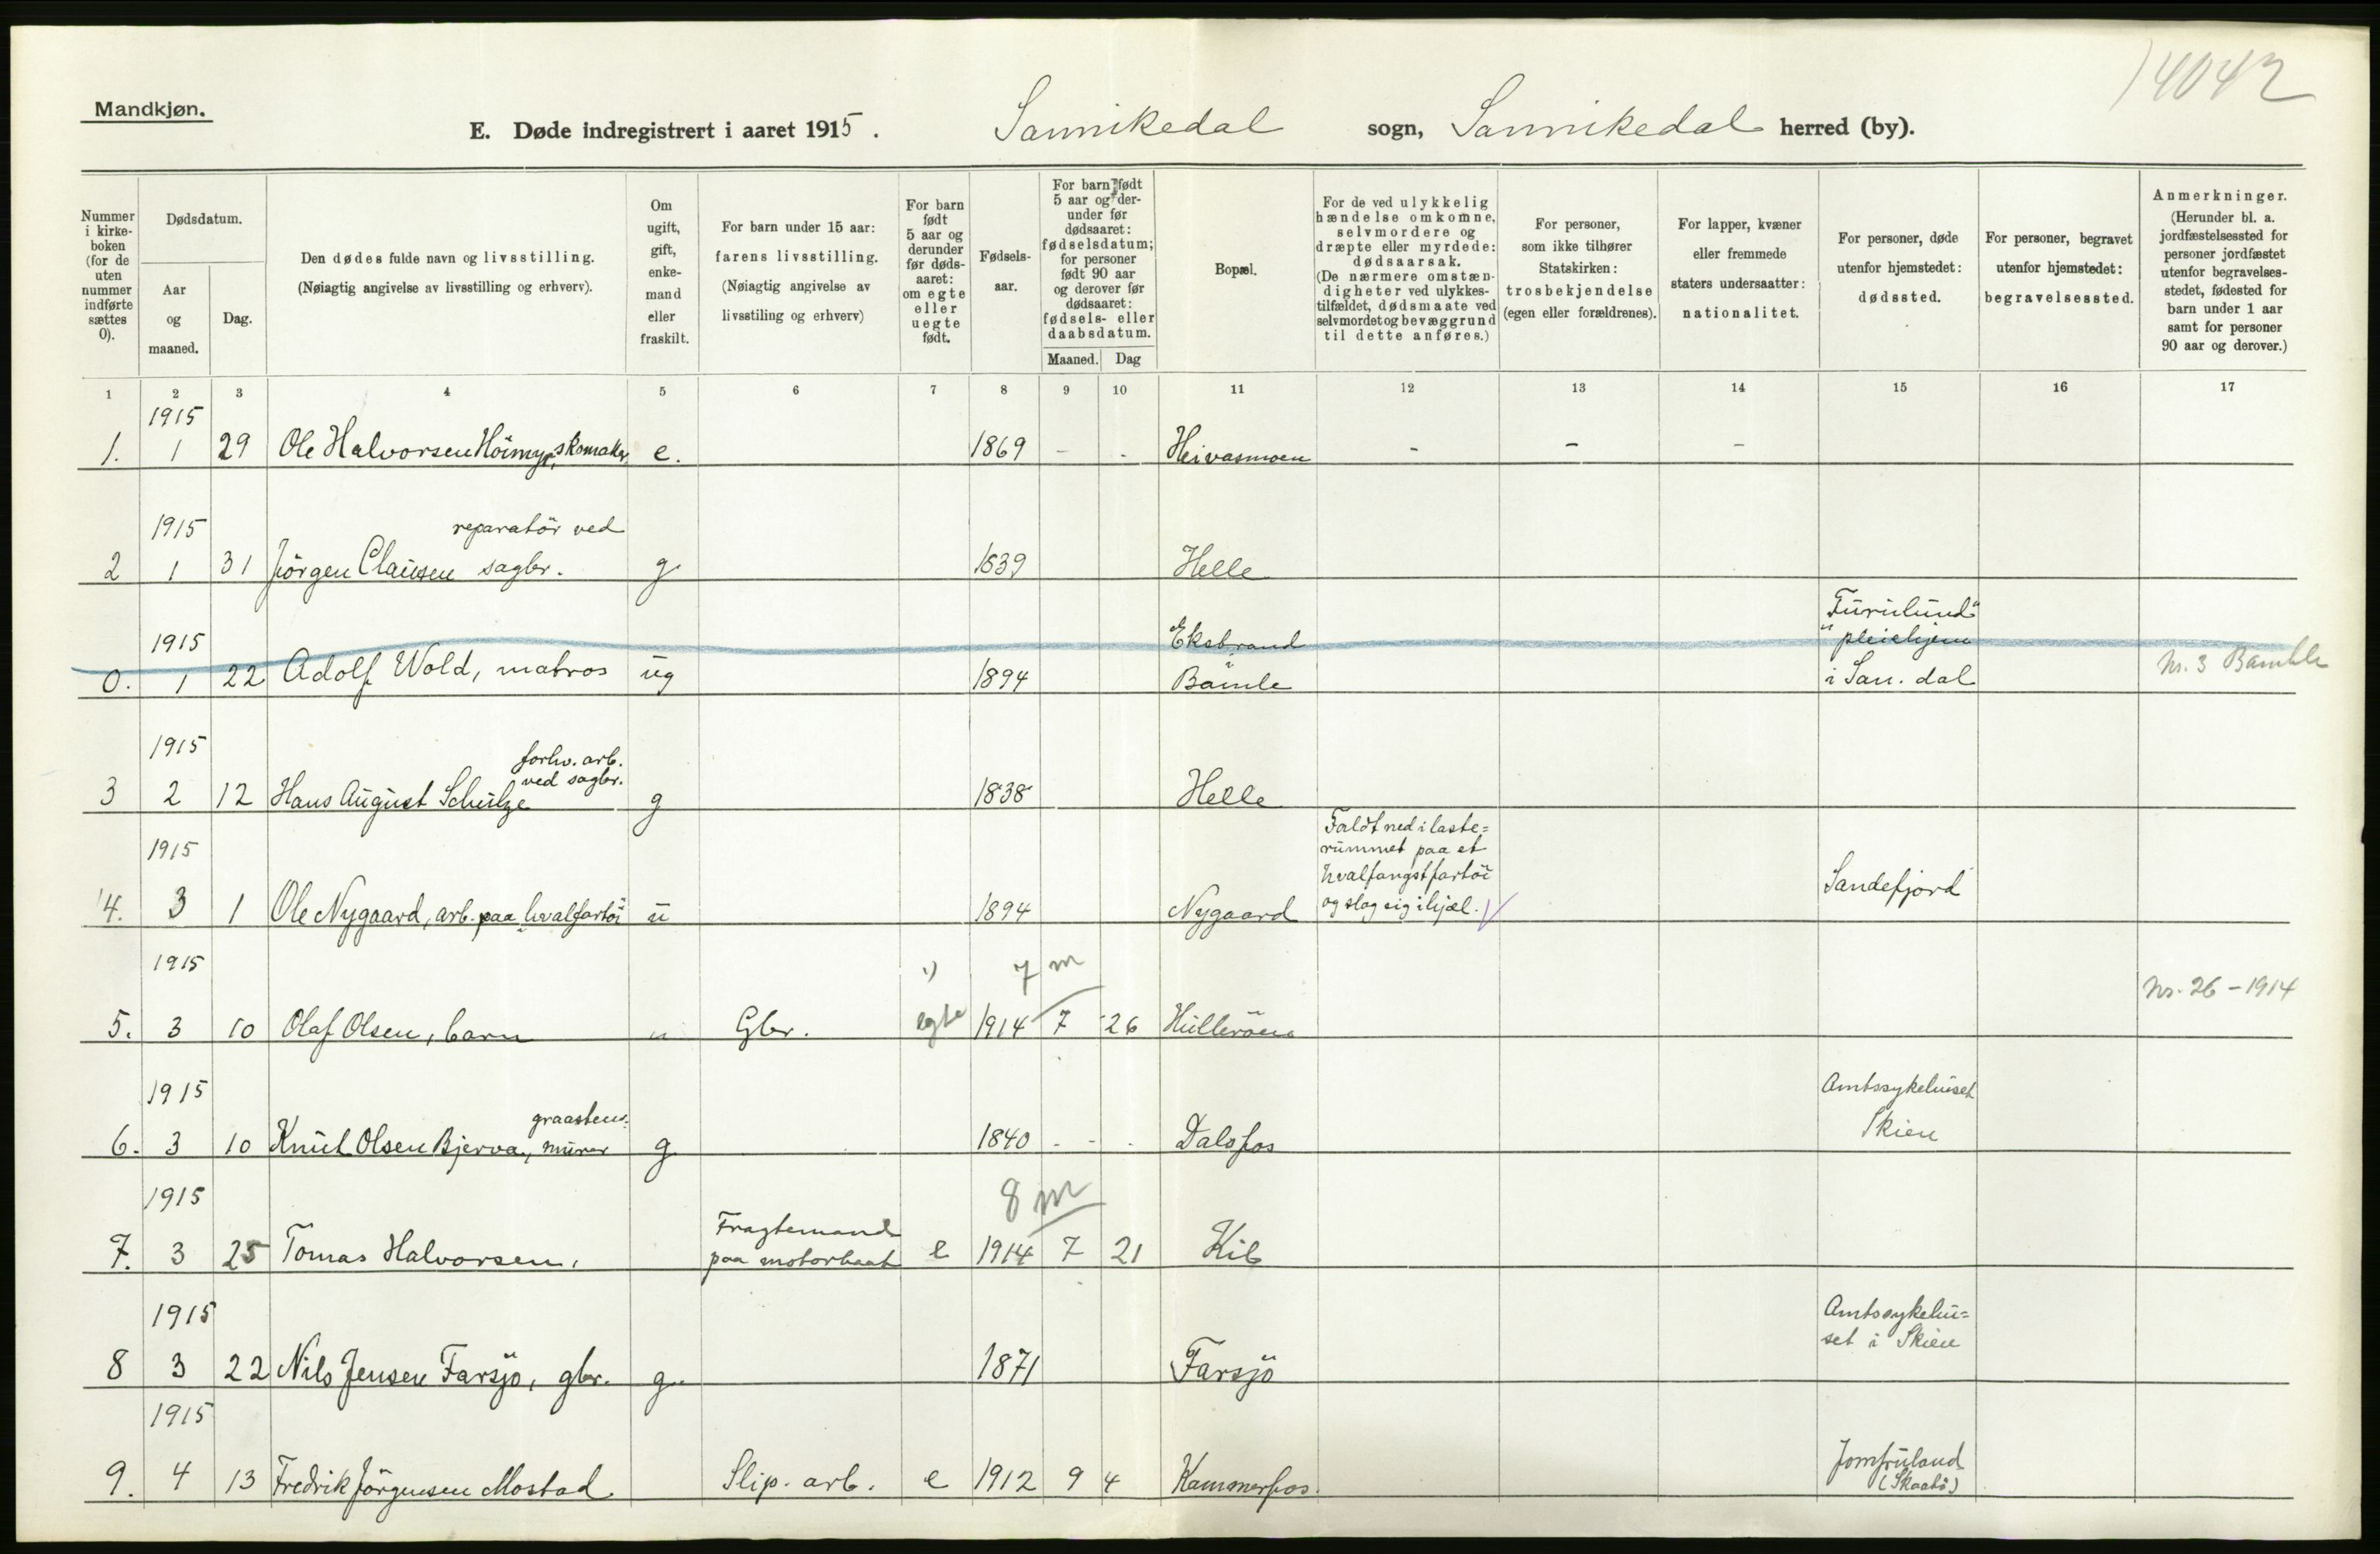 14042
Mandkjøn.
E. Døde indregistrert i aaret 1915. Sannikedal sogn, Sannikedal herred (by).
Nummer i kirkeboken (for de uten nummer indførte sættes 0).
Dødsdatum.
Aar og maaned.
Dag.
Den dødes fulde navn og livsstilling.
(Nøiagtig angivelse av livsstilling og erhverv).
Om ugift, gift, enkemand eller fraskilt.
For barn under 15 aar: farens livsstilling.
(Nøiagtig angivelse av livsstiling og erhverv)
For barn født 5 aar og derunder før dødsaaret: om egte eller uegte født.
Fødselsaar.
For barn født 5 aar og derunder før dødsaaret: fødselsdatum; for personer født 90 aar og derover før dødsaaret: fødsels- eller daabsdatum.
Maaned. Dag
Bopæl.
For de ved ulykkelig hændelse omkomne, selvmordere og dræpte eller myrdede: dødsaarsak.
(De nærmere omstændigheter ved ulykkestilfældet, dødsmaate ved selvmordet og bevæggrund til dette anføres.)
For personer, som ikke tilhører Statskirken: trosbekjendelse (egen eller forældrenes).
For lapper, kvæner eller fremmede staters undersaatter: nationalitet.
For personer, døde utenfor hjemstedet: dødssted.
For personer, begravet utenfor hjemstedet: begravelsessted.
Anmerkninger.
(Herunder bl. a. jordfæstelsessted for personer jordfæstet utenfor begravelsesstedet, fødested for barn under 1 aar samt for personer 90 aar og derover.)
1 2 3 4 5 6 7 8 9 10 11 12 13 14 15 16 17
1915
1. 1 29 Ole Halvorsen Höimyr, skomaker e. 1869 - . Heivasmoen - - -
1915 reparatör ved
2 1 31 Jörgen Clausen sagbr. g. 1839 Helle
1915 Eksbrand "Furulund" pleiehjem
0. 1 22 Adolf Wold, matros ug 1894 i Bamle i San. dal Nr. 3 Bamble
1915 forhv. arb. ved sagbr.
3 2 12 Hans August Schulze g 1838 Helle
1915 Faldt ned i laste=
rummet paa et
hvalfangstfartöi
4. 3 1 Ole Nygaard, arb. paa hvalfartöi u 1894 Nygaard og slog sig ihjæl. Sandefjord
1915 1) 7 m
5. 3 10 Olaf Olsen, barn u Gbr. egte 1914 7 26 Nr. 26 - 1914
1915 graastens- Amtssykehuset
6. 3 10 Knut Olsen Bjerva, murer g 1840 - - . Dalsfos Skien
1915 8 m
Fragtemand
7. 3 25 Tomas Halvorsen, paa motorbaat e 1914 7 21 Kil
1915 Amtssykehu=
set i Skien
8 3 22 Nils Jensen Farsjö, gbr. g. 1871 Farsjö
1915
9. 4 13 Fredrik Jörgensen Mostad Slip. arb. e 1912 9 4 Kammerfos. Jomfruland (Skaatö)